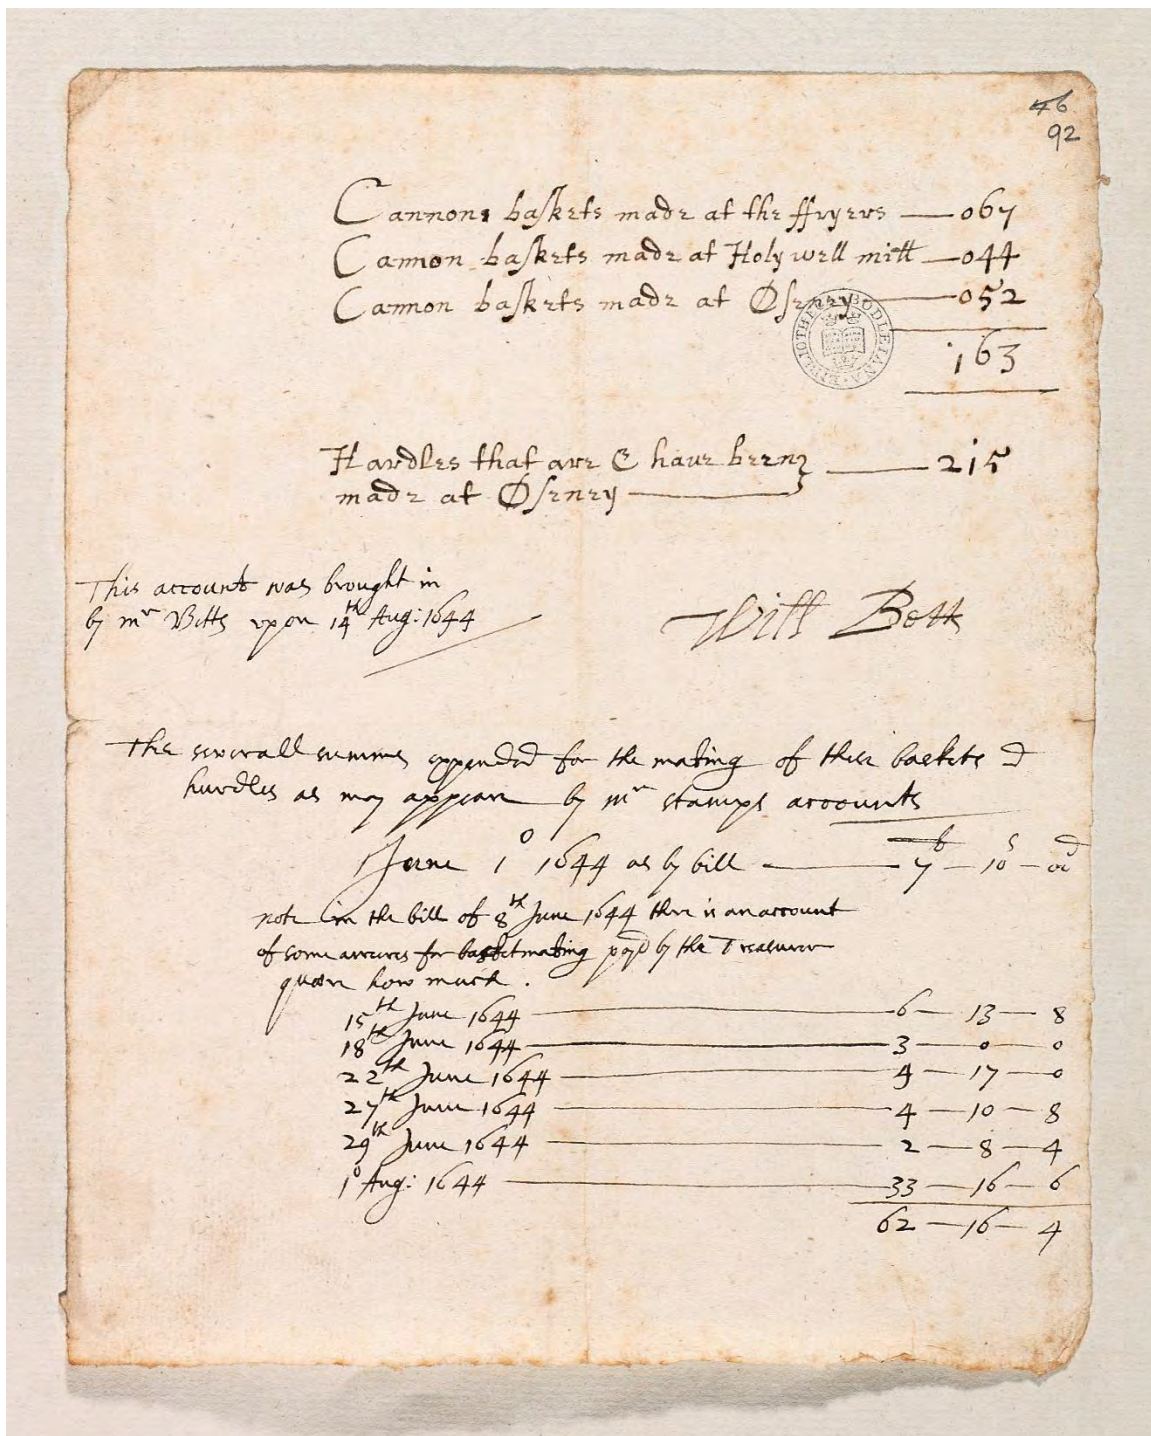 46
92
Cannon baskets made at the ffryers — 067
Cannon baskets made at Holy well mill — 044
Cannon baskets made at Oseney — 052
163
BIBLIOTHECA BODLEIANA
Hardles that are & have beene } — 215
made at Oseney —
This account was brought in
by mr Betts vpon 14th Aug: 1644
Will Bett
The severall summes expended for the making of these baskets &
hurdles as may appeare by mr stamps accounts
li s d
June 1o 1644 as by bill — 7 — 10 — 02
note in the bill of 8th June 1644 there is an account
of some arreres for basket making payd by the Treasurer
quaere how much.
15th June 1644 — 6 — 13 — 8
18th June 1644 — 3 — 0 — 0
22th June 1644 — 4 — 17 — 0
27th June 1644 — 4 — 10 — 8
29th June 1644 — 2 — 8 — 4
1o Aug: 1644 — 33 — 16 — 6
62 — 16 — 4